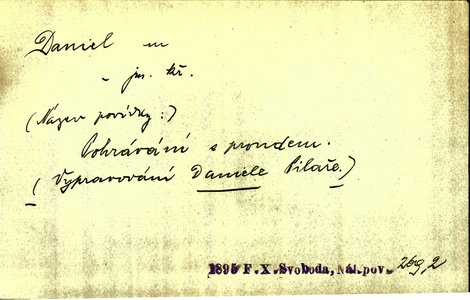 Daniel m
- jm. kř.
(Název povídky:)
Pohrávání s proudem.
(Vypravování Daniele Pilaře.)
1895 F. X. Svoboda, Nál. pov. 269, 2